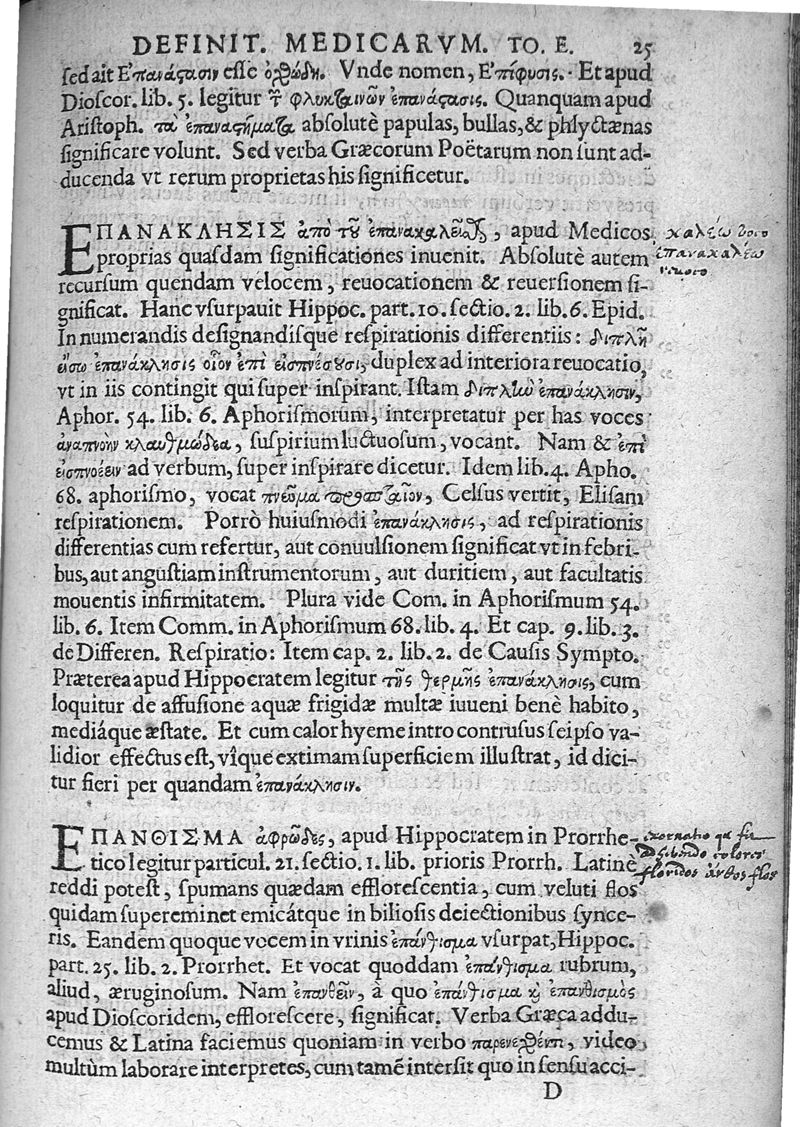 DEFINIT. MEDICARVM. TO. E. 25
ſed ait Ἐπανάϛασιν eſſe ὀρθώδη. Vnde nomen, Ἐπίφυσις. Et apud
Dioſcor. lib. 5. legitur φλυκταινῶν ἐπανάϛασις. Quanquam apud
Ariſtoph. τὰ ἐπαναϛήματα abſolutè papulas, bullas, & phlyctænas
ſignificare volunt. Sed verba Græcorum Poëtarum non ſunt ad-
ducenda vt rerum proprietas his ſignificetur.
ΕΠΑΝΑΚΛΗΣΙΣ ἀπὸ τοῦ ἐπανακαλεῖσθαι, apud Medicos
proprias quaſdam ſignificationes inuenit. Abſolutè autem
recurſum quendam velocem, reuocationem & reuerſionem ſi-
gnificat. Hanc vſurpauit Hippoc. part. 10. ſectio. 2. lib. 6. Epid.
In numerandis deſignandiſque reſpirationis differentiis: διπλῆ
εἴσω ἐπανάκλησις οἷον ἐπὶ εἰσπνέουσι, duplex ad interiora reuocatio,
vt in iis contingit qui ſuper inſpirant. Iſtam διπλὼ ἐπανάκλησιν,
Aphor. 54. lib. 6. Aphoriſmorum, interpretatur per has voces
ἀναπνοὴν κλαυθμώδεα, ſuſpirium luctuoſum, vocant. Nam & ἐπὶ
εἰσπνοέειν ad verbum, ſuper inſpirare dicetur. Idem lib. 4. Apho.
68. aphoriſmo, vocat πνεῦμα προσπταῖον, Celſus vertit, Eliſam
reſpirationem. Porrò huiuſmodi ἐπανάκλησις, ad reſpirationis
differentias cum refertur, aut conuulſionem ſignificat vt in febri-
bus, aut anguſtiam inſtrumentorum, aut duritiem, aut facultatis
mouentis infirmitatem. Plura vide Com. in Aphoriſmum 54.
lib. 6. Item Comm. in Aphoriſmum 68. lib. 4. Et cap. 9. lib. 3.
de Differen. Reſpiratio: Item cap. 2. lib. 2. de Cauſis Sympto.
Præterea apud Hippocratem legitur τῆς θερμῆς ἐπανάκλησις, cum
loquitur de affuſione aquæ frigidæ multæ iuueni benè habito,
mediáque æſtate. Et cum calor hyeme intro contruſus ſeipſo va-
lidior effectus eſt, vîque extimam ſuperficiem illuſtrat, id dici-
tur fieri per quandam ἐπανάκλησιν.
καλέω voco
ἐπανακαλέω
reuoco
ΕΠΑΝΘΙΣΜΑ ἀφρῶδες, apud Hippocratem in Prorrhe-
tico legitur particul. 21. ſectio. 1. lib. prioris Prorrh. Latinè
reddi poteſt, ſpumans quædam effloreſcentia, cum veluti flos
quidam ſupereminet emicátque in bilioſis deiectionibus ſynce-
ris. Eandem quoque vocem in vrinis ἐπάνθισμα vſurpat, Hippoc.
part. 25. lib. 2. Prorrhet. Et vocat quoddam ἐπάνθισμα rubrum,
aliud, æruginoſum. Nam ἐπανθεῖν, à quo ἐπάνθισμα ϗ ἐπανθισμὸς
apud Dioſcoridem, effloreſcere, ſignificat. Verba Græca addu-
cemus & Latina faciemus quoniam in verbo παρενεχθέντι, video
multùm laborare interpretes, cum tamẽ interſit quo in ſenſu acci-
D
exornatio
colores
floridos ἄνθος flos